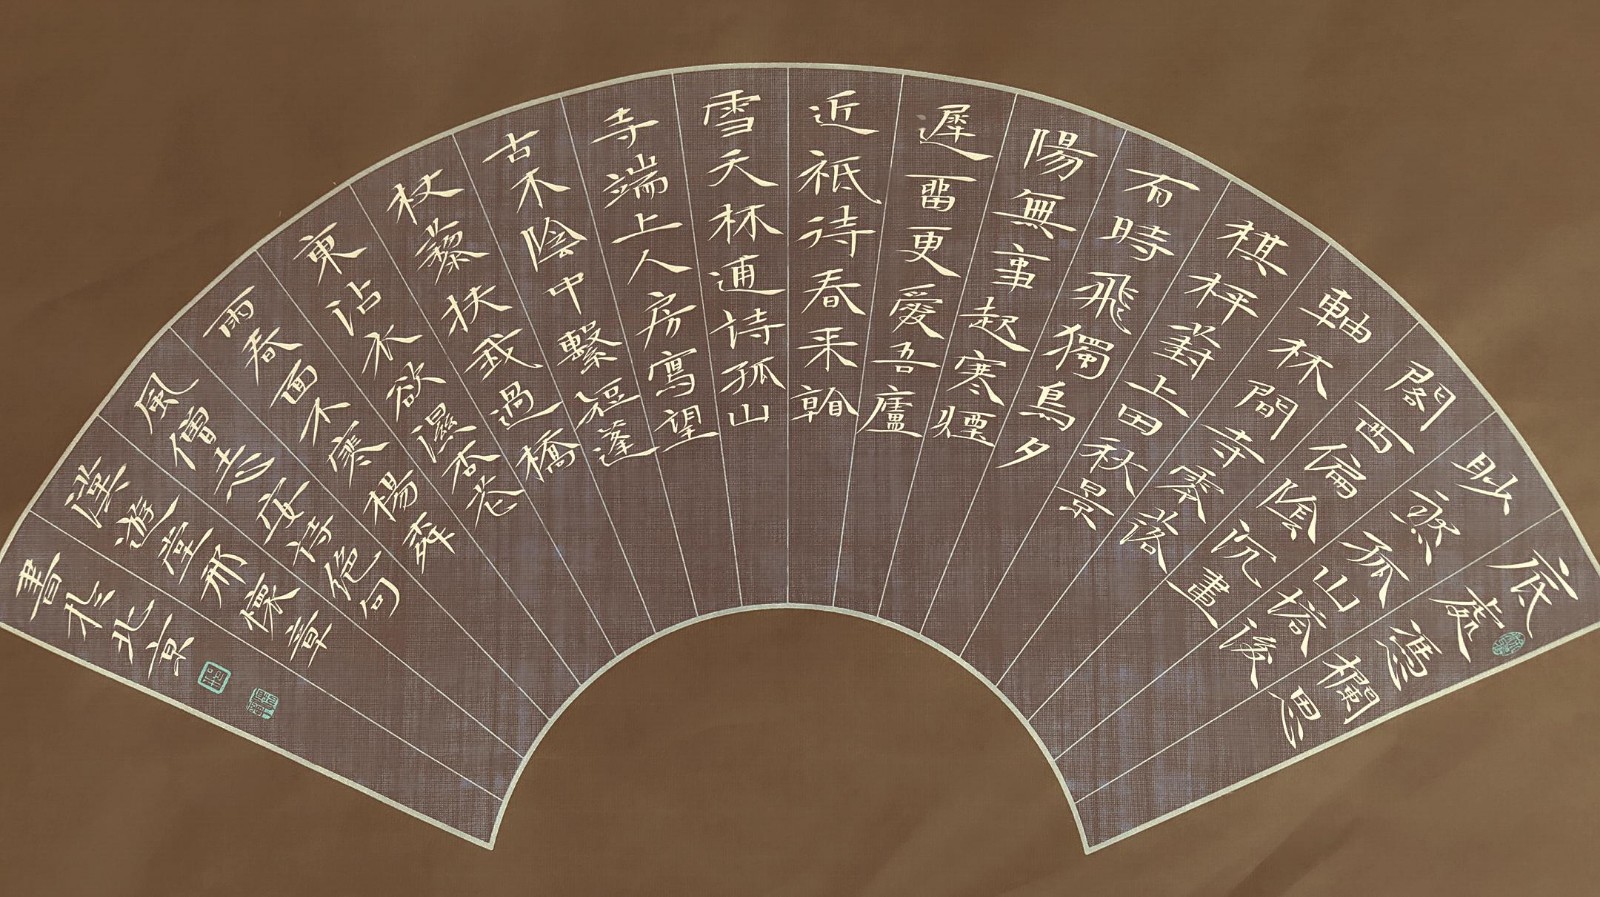 底處馮欄思
眇然孤山塔後
閣西偏陰沉畫
軸林間寺零落
棋枰葑上田秋景
有時飛獨鳥夕
陽無事起寒煙
遲畱更愛吾廬
近祗待春来看
雪天林逋詩孤山
寺端上人房寫望
古木陰中繫短蓬
杖藜扶我過橋
東沾衣欲濕杏花
雨春面不寒楊
風僧志安詩絕句
漢游堂邢懷章
書於北京